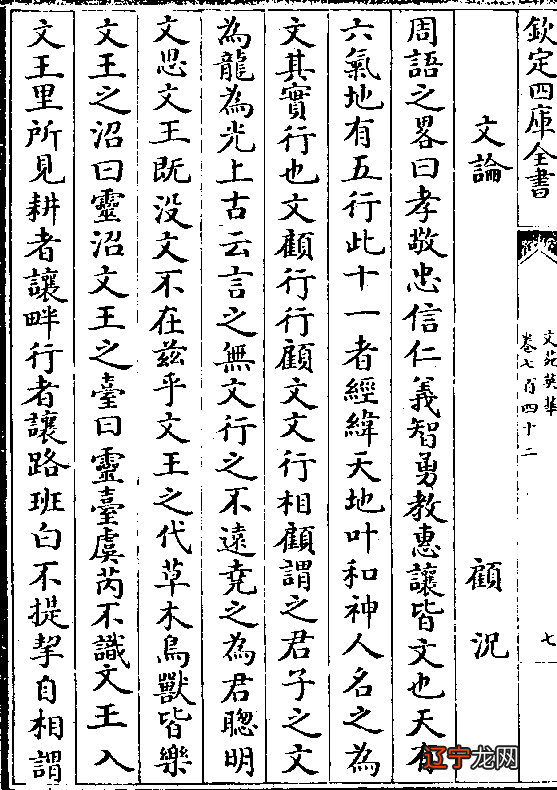 欽定四庫全書
文苑英華
卷七百四十二
七
文論
顧況
周語之畧曰孝敬忠信仁義智勇教惠讓皆文也天有
六氣地有五行此十一者經緯天地叶和神人名之為
文其實行也文顧行行顧文文行相顧謂之君子之文
為龍為光上古云言之無文行之不遠堯之為君聰明
文思文王既没文不在兹乎文王之代草木鳥獸皆樂
文王之沼曰靈沼文王之臺曰靈臺虞芮不識文王入
文王里所見耕者讓畔行者讓路班白不提挈自相謂
辽宁龙网